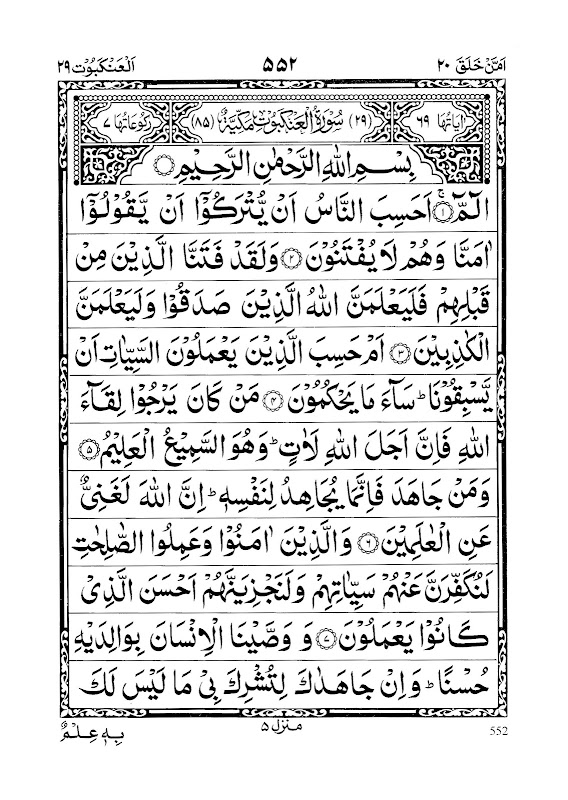 اَمَّنْ خَلَقَ ٢٠ ٥٥٢ اَلْعَنْكَبُوْت ٢٩
اٰيَاتُهَا ٦٩ (٢٩) سُوْرَةُ الْعَنْكَبُوْتِ مَكِّيَّةٌ (٨٥) رُكُوْعَاتُهَا ٧
بِسْمِ اللّٰهِ الرَّحْمٰنِ الرَّحِيْمِ
الٓمّٓ ۚ﴿١﴾ اَحَسِبَ النَّاسُ اَنْ يُّتْرَكُوْۤا اَنْ يَّقُوْلُوْۤا
اٰمَنَّا وَهُمْ لَا يُفْتَنُوْنَ ﴿٢﴾ وَلَقَدْ فَتَنَّا الَّذِيْنَ مِنْ
قَبْلِهِمْ فَلَيَعْلَمَنَّ اللّٰهُ الَّذِيْنَ صَدَقُوْا وَلَيَعْلَمَنَّ
الْكٰذِبِيْنَ ﴿٣﴾ اَمْ حَسِبَ الَّذِيْنَ يَعْمَلُوْنَ السَّيِّاٰتِ اَنْ
يَّسْبِقُوْنَا ؕ سَآءَ مَا يَحْكُمُوْنَ ﴿٤﴾ مَنْ كَانَ يَرْجُوْا لِقَآءَ
اللّٰهِ فَاِنَّ اَجَلَ اللّٰهِ لَاٰتٍ ؕ وَهُوَ السَّمِيْعُ الْعَلِيْمُ ﴿٥﴾
وَمَنْ جَاهَدَ فَاِنَّمَا يُجَاهِدُ لِنَفْسِهٖ ؕ اِنَّ اللّٰهَ لَغَنِيٌّ
عَنِ الْعٰلَمِيْنَ ﴿٦﴾ وَالَّذِيْنَ اٰمَنُوْا وَعَمِلُوا الصّٰلِحٰتِ
لَنُكَفِّرَنَّ عَنْهُمْ سَيِّاٰتِهِمْ وَلَنَجْزِيَنَّهُمْ اَحْسَنَ الَّذِيْ
كَانُوْا يَعْمَلُوْنَ ﴿٧﴾ وَ وَصَّيْنَا الْاِنْسَانَ بِوَالِدَيْهِ
حُسْنًا ؕ وَاِنْ جَاهَدٰكَ لِتُشْرِكَ بِيْ مَا لَيْسَ لَكَ
منزل ٥
بِهٖ عِلْمٌ
552